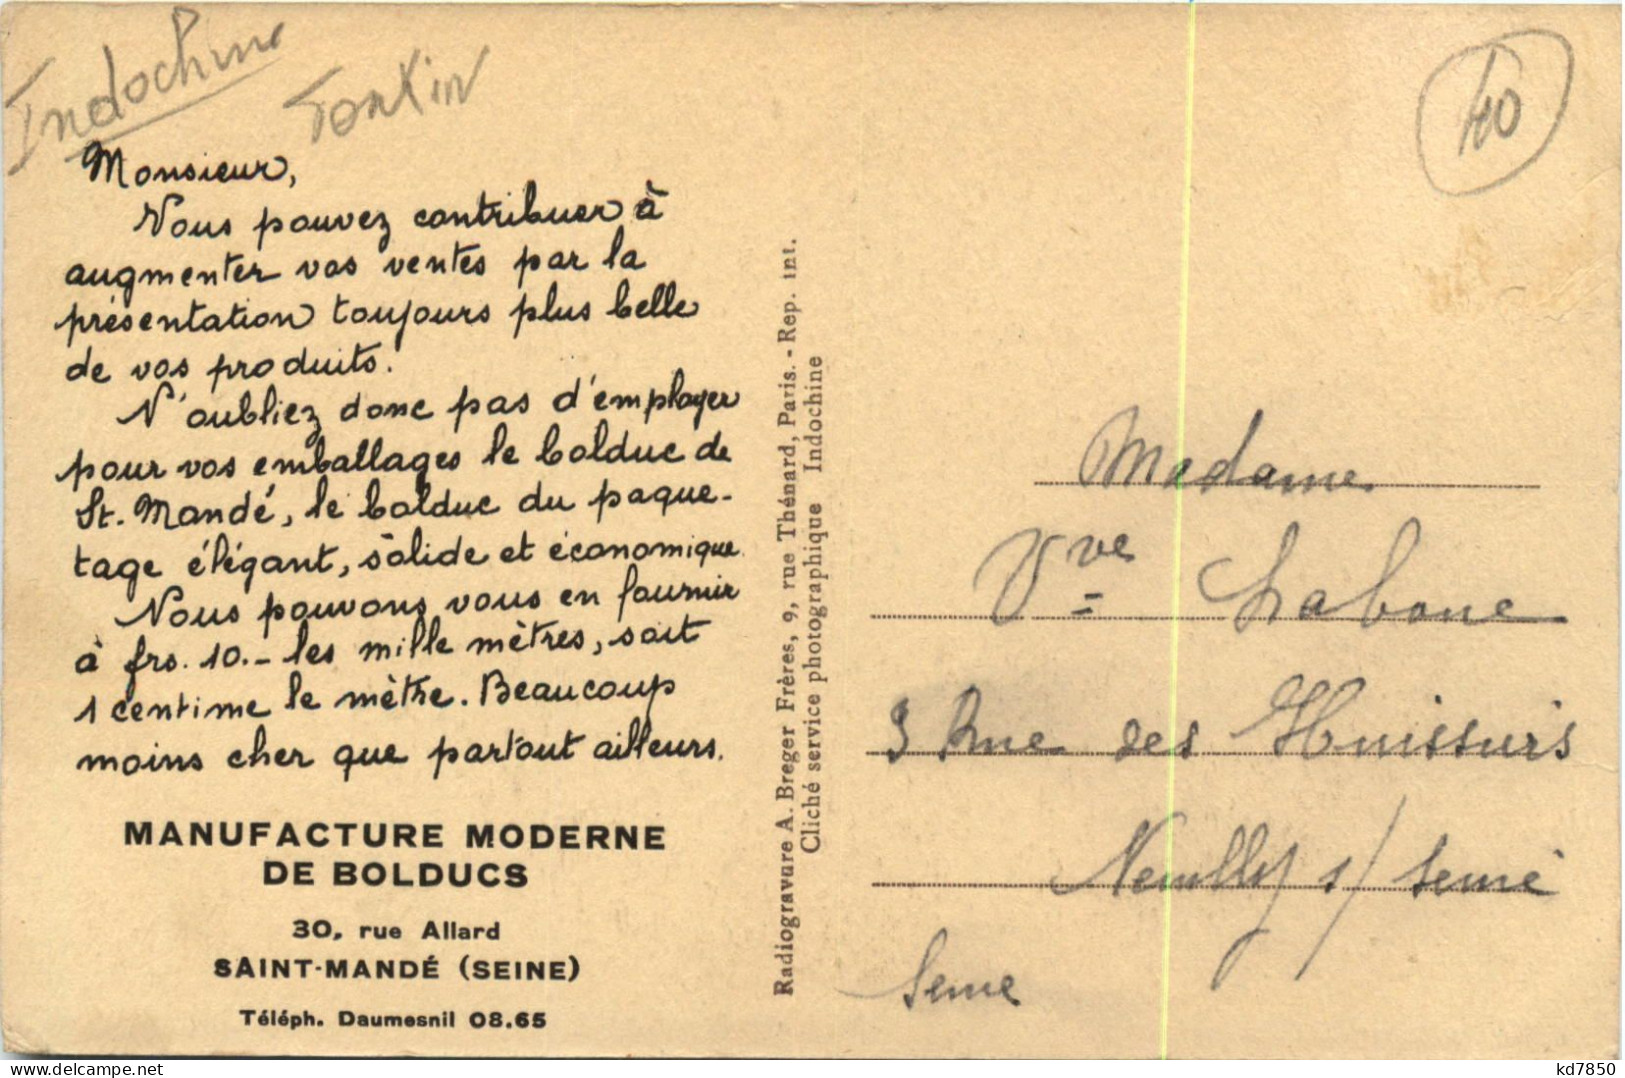 Indochine
Tonkin
40
Monsieur,
Vous pouvez contribuer à
augmenter vos ventes par la
présentation toujours plus belle
de vos produits.
N'oubliez donc pas d'employer
pour vos emballages le bolduc de
St. Mandé, le bolduc du paque-
tage élégant, solide et économique.
Nous pouvons vous en fournir
à frs. 10.- les mille mètres, soit
1 centime le mètre. Beaucoup
moins cher que partout ailleurs.
MANUFACTURE MODERNE
DE BOLDUCS
30, rue Allard
SAINT-MANDÉ (SEINE)
Téléph. Daumesnil 08.65
Radiogravure A. Breger Frères, 9, rue Thénard, Paris. - Rep. int.
Cliché service photographique Indochine
Madame
Vve Labone
3 Rue des Huissiers
Neuilly s/ Seine
Seine
kd7850